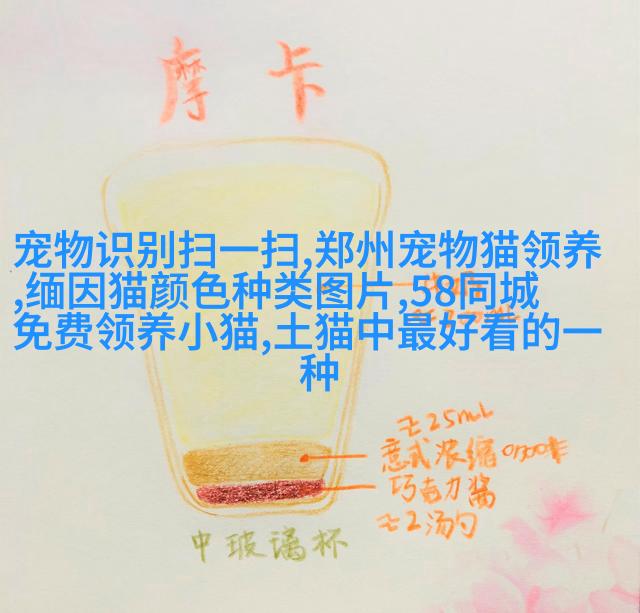 摩卡
宠物识别扫一扫,郑州宠物猫领养
,缅因猫颜色种类图片,58同城
免费领养小猫,土猫中最好看的一
种
≈25mL
意式浓缩
巧克力酱
≈2汤勺
中玻璃杯